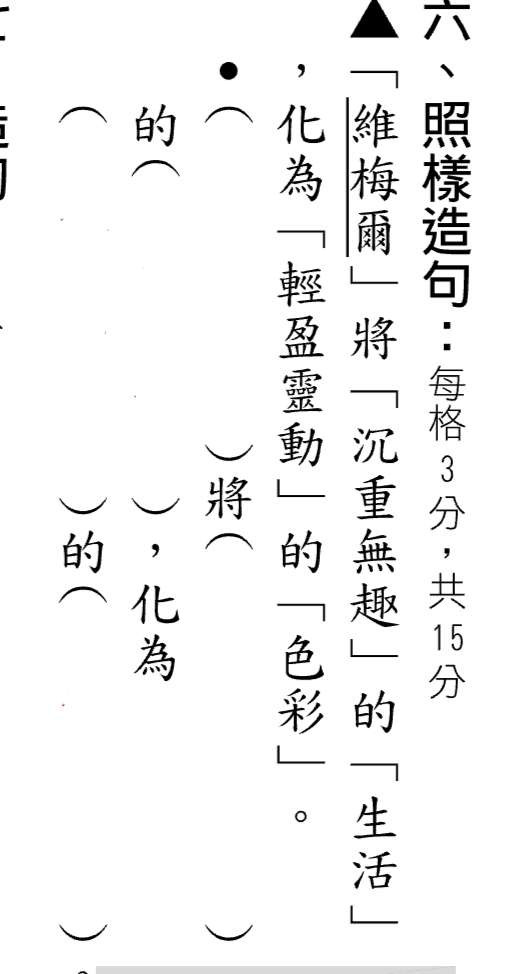 六、照樣造句：每格3分，共15分
▲「維梅爾」將「沉重無趣」的「生活」
，化為「輕盈靈動」的「色彩」。
●（　　　　　　）將（　　　　　　）
的（　　　　　　），化為
（　　　　　　）的（　　　　　　）